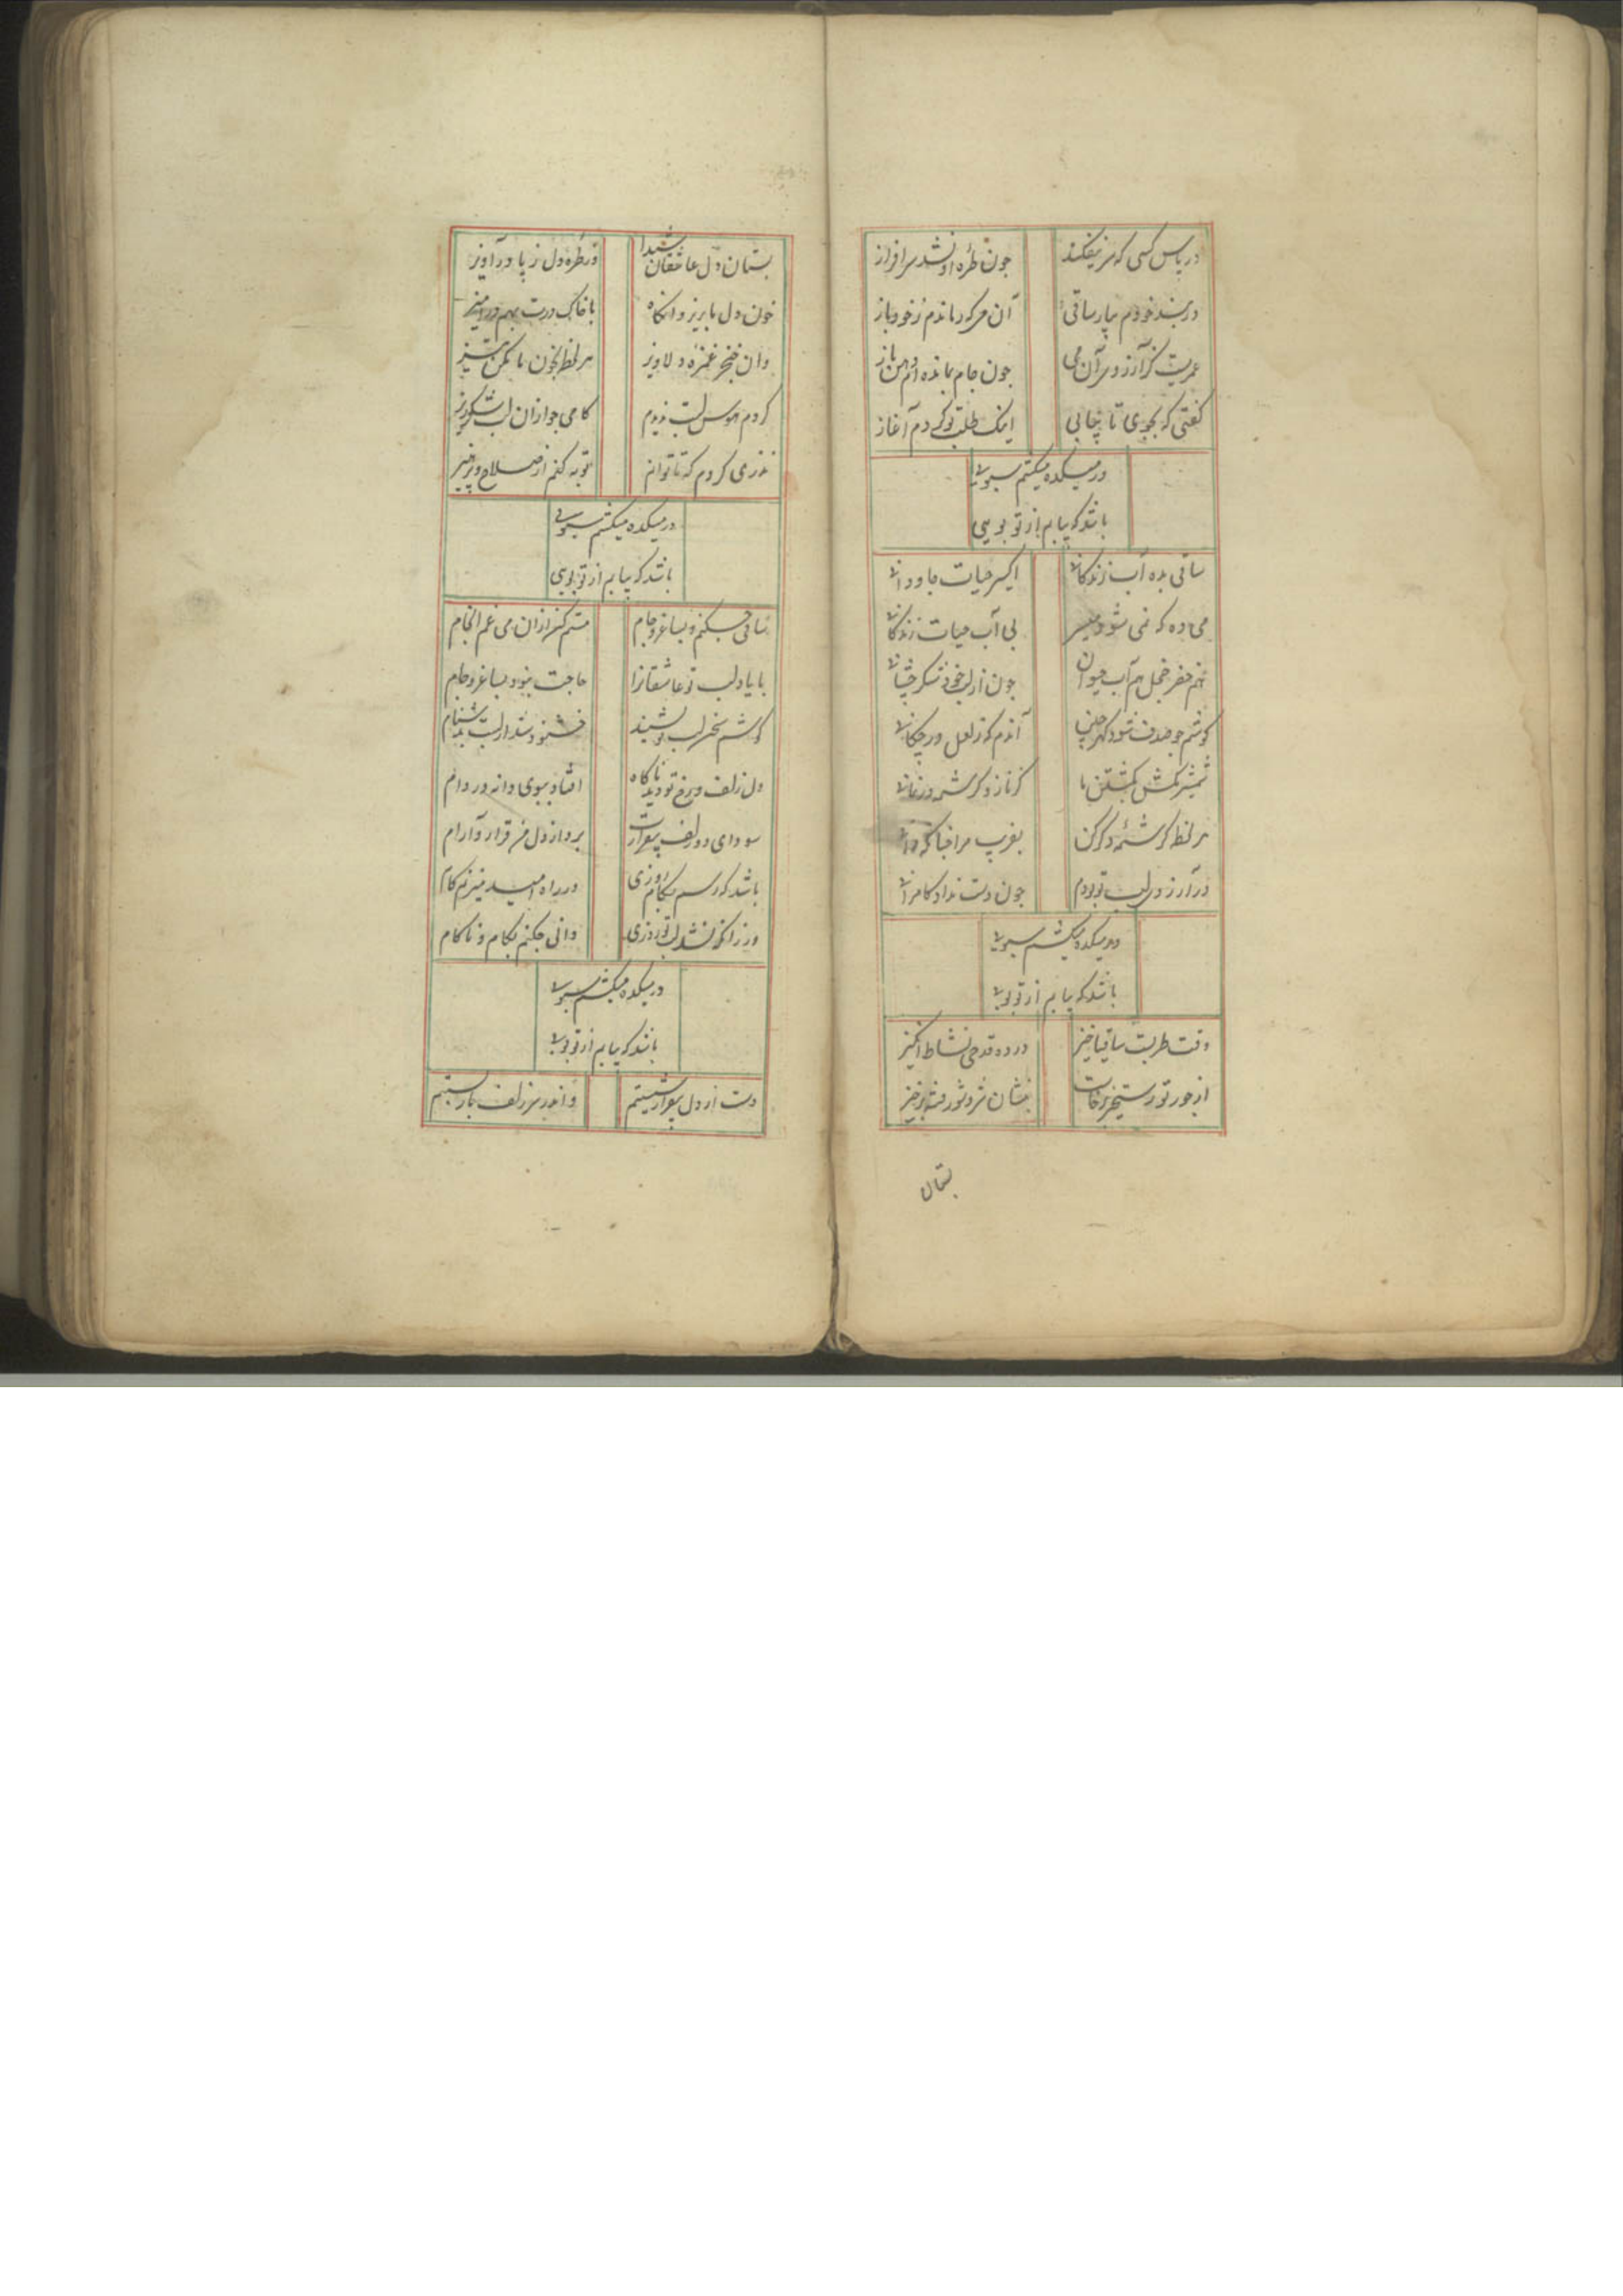 در پاش کسی که سر نیفکند    چون طره او نشد سرافراز
دربند خودم بیار ساقی    آن می که رهاندم زخود باز
عمریست کز آرزوی آن می    چون جام بمانده‌ام دهن باز
گفتی که بجوی تا بیابی    اینک طلب تو کردم آغاز
در میکده میکشم سبویی
باشد که بیابم از تو بویی
ساقی بده آب زندگانی    اکسیر حیات جاودانی
می ده که نمی شود میسر    بی آب حیات زندگانی
هم خضر خجل هم آب حیوان    چون از لب خود شکر فشانی
گوشم چو صدف شود گهر چین    آندم که ز لعل در چکانی
شمشیر مکش بکشتن ما    کز ناز و کرشمه در نمانی
هر لحظه کرشمه دگر کن    بفریب مرا چنانکه دانی
در آرزوی لب تو بودم    چون دست نداد کامرانی
در میکده میکشم سبویی
باشد که بیابم از تو بویی
وقت طربست ساقیا خیز    در ده قدحی نشاط انگیز
از جور تو رستخیز برخاست    بنشان شر و شور فتنه برخیز
بستان
بستان دل عاشقان شیدا    در طره دل ز پا درآویز
خون دل ما بریز و آنگاه    با خاک درت بهم درآمیز
وان خنجر غمزه دلاویز    هر لحظه بخون ما بکن تیز
کردم هوس لبت ندیدم    کامی چو از آن لب شکرریز
نذری کردم که تا توانم    توبه کنم از صلاح و پرهیز
در میکده میکشم سبویی
باشد که بیابم از تو بویی
ساقی چکنم بساغر و جام    مستم کن از آن می غم انجام
با یاد لب تو عاشقانرا    حاجت نبود بساغر و جام
گوشم سخن لب تو بشنید    خشنود شد از لبت بدشنام
دل زلف و رخ تو دید ناگاه    افتاد ببوی دانه در دام
سودای دو زلف بیقرارت    برد از دل من قرار و آرام
باشد که رسم بکام روزی    در راه امید میزنم گام
ور زانکه نشد لب تو روزی    دانی چکنم بکام و ناکام
در میکده میکشم سبویی
باشد که بیابم از تو بویی
دست از دل بیقرار شستیم    واندر سر زلف یار بستیم